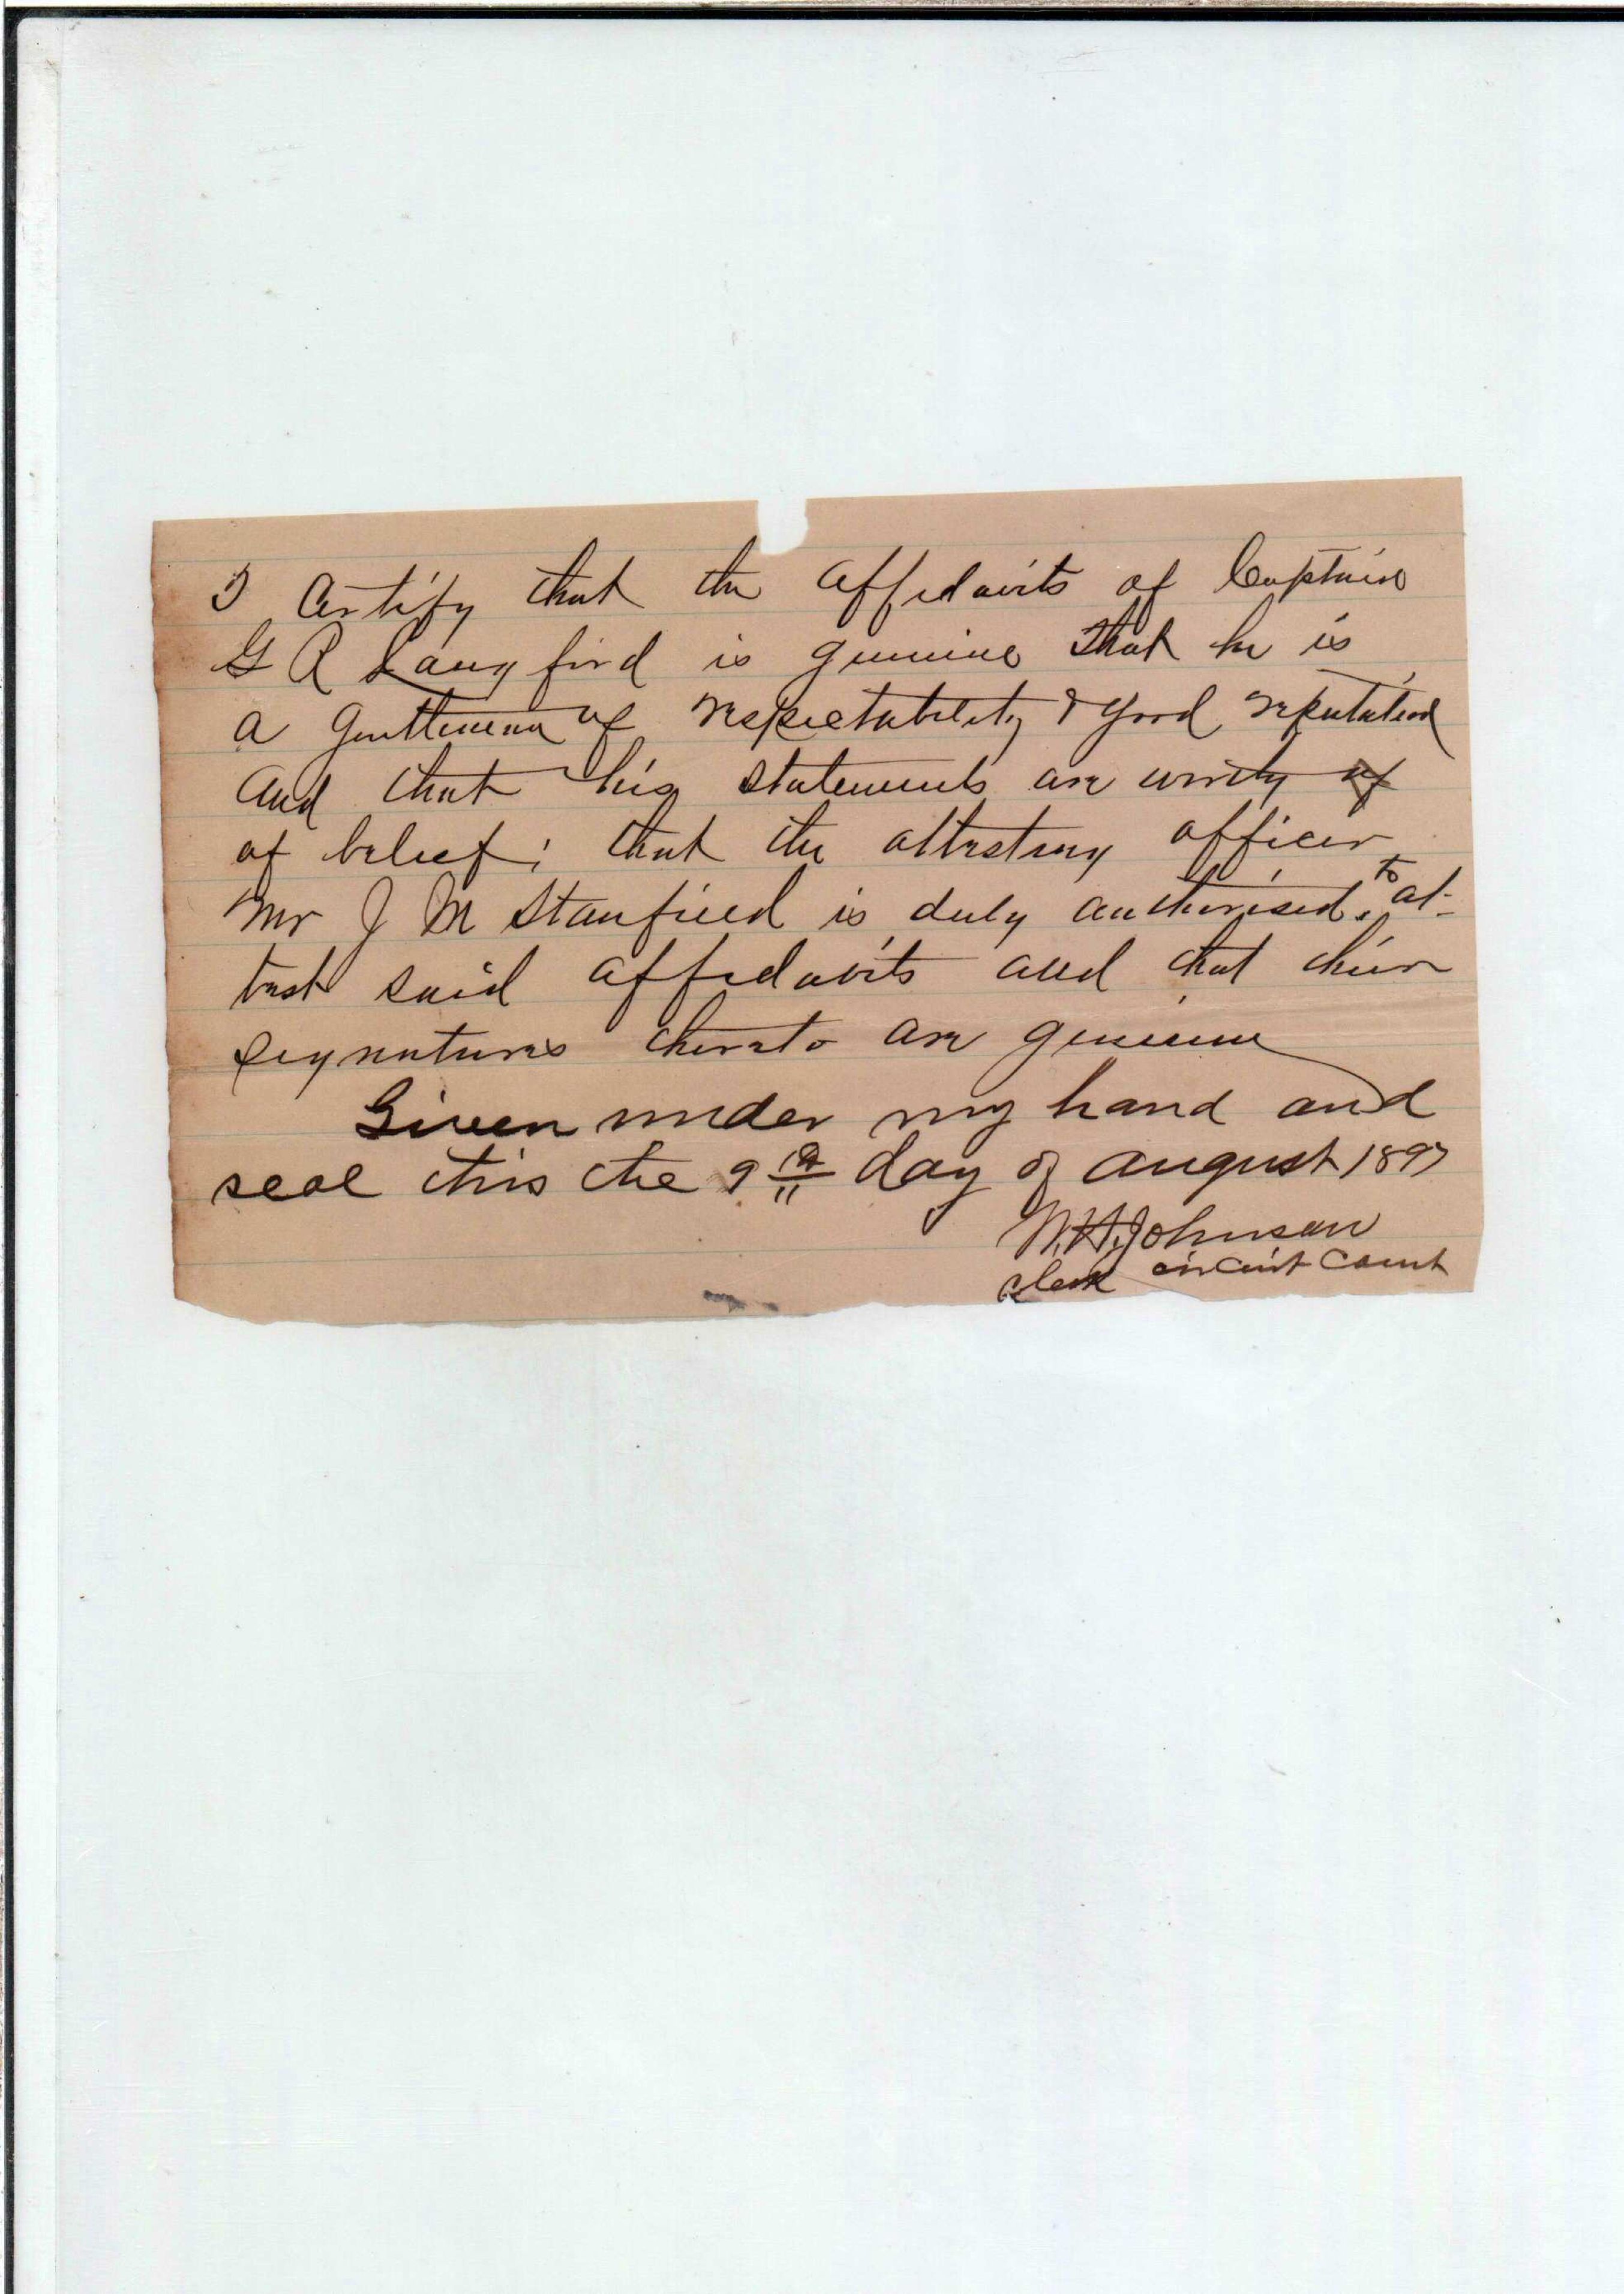 I Certify that the affidavits of Captain
G R Langford is genuine that he is
a gentleman of respectability & good reputation
and that his statements are worthy of
of belief; that the attesting officer
Mr J M Stanfield is duly authorised to at-
test said affidavits and that their
signatures thereto are genuine
Given under my hand and
seal this the 9th day of august 1897
W.H. Johnson
Clerk circuit court